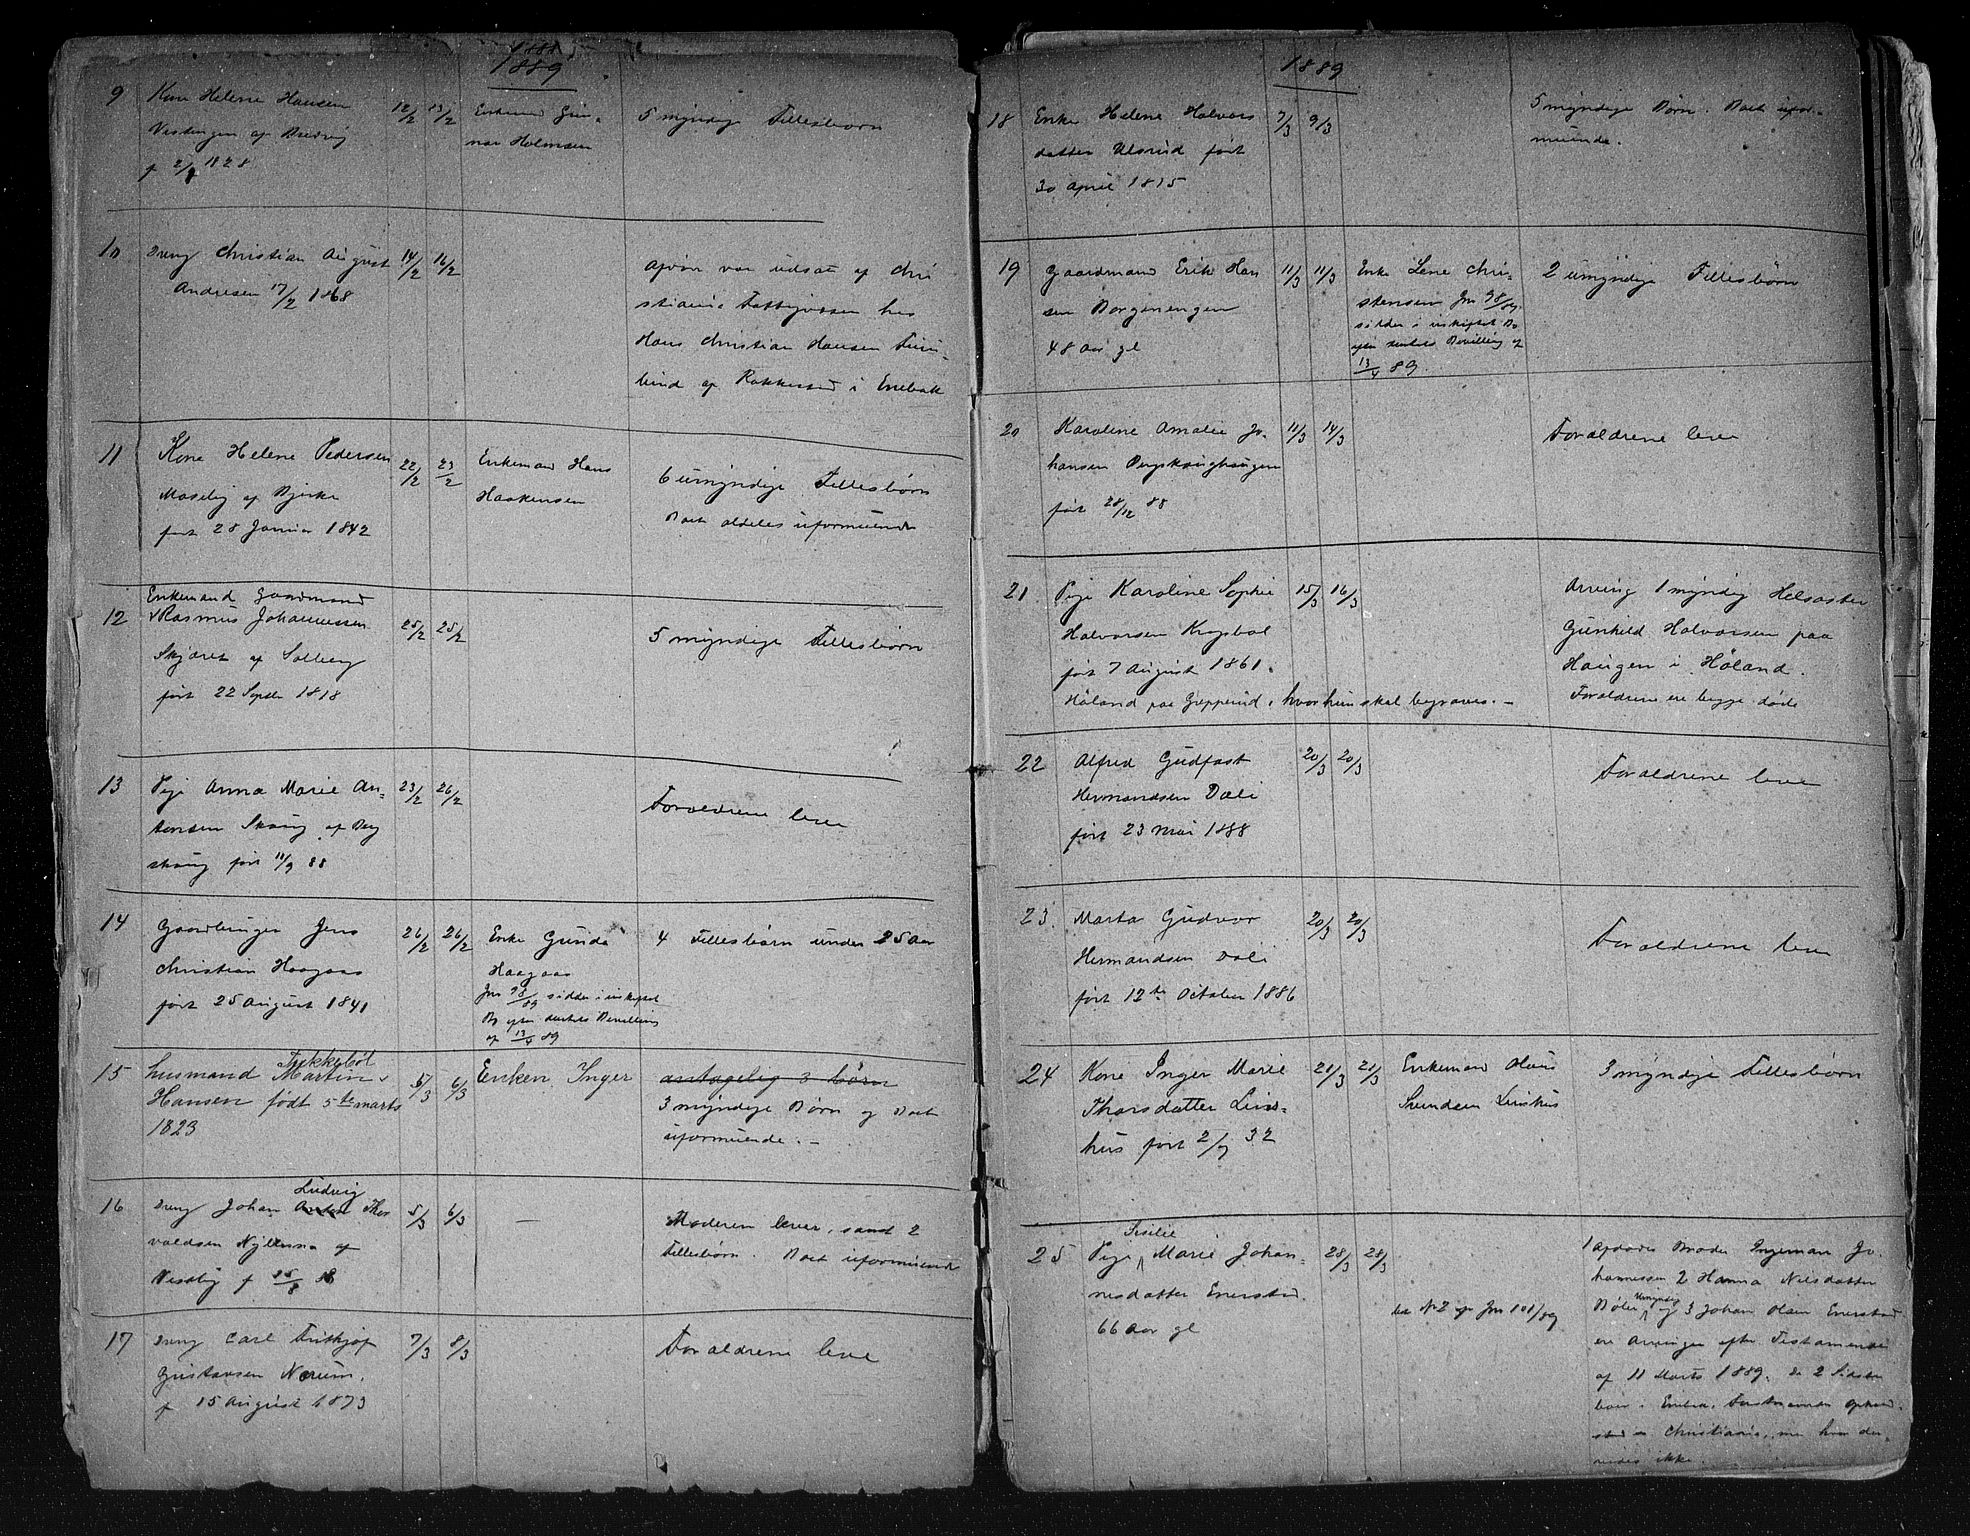 1889
9 Kone Helene Hansen 12/2 13/2 Enkemand Gun- 5 myndige Fællesbørn
Vestengen af
nar Holmsen
f 2/ 1828
10 Dreng Christian August 14/2 16/2
Andresen 17/2 1868
Afdøe var udsat af Chri
stiania Fattigvæsen hos
Hans Christian Hansen
af i Enebak
11 Kone Helene Pedersen 22/2 23/2 Enkemand Hans 6 umyndige Fællesbørn
af Bjerke Haakensen Boet aldeles uformuende
født 28 Januar 1842
12 Enkemand Gaardmand
Rasmus Johannessen 25/2 25/2 5 myndige Fællesbørn
Skjæret af Solberg
født 22 Septr 1818
13 Pige Anna Marie An- 23/2 26/2 Forældrene lever
tonsen Skaug af Berg
skaug født 11/9 88
14 Gaardbruger Jens 26/2 26/2 Enke Gunda 4 Fællesbørn under 25 Aar
Christian Haagaas Haagaas
født 25 August 1841
Jnr 98/89 sidder i uskiftet
Bo efter Amtets Bevilling
af 13/4 89
15 husmand Martin 5/3 6/3 Enken Inger antagelig 3 børn
Hansen født 5te marts 3 myndige Børn og Boet
1823 uformuende. –
16 Dreng Johan Ludvig Thor 5/3 6/3 – Moderen lever, samt 2
valdsen af Fællesbørn. Boet uformuende
f 25/8 88
17 Dreng Carl Frithjof 7/3 8/3 Forældrene lever
Gustavsen Nærum.
f 15 August 1873
1889
18 Enke Helene Halvors 7/3 9/3 5 myndige Børn. Boet ufor-
datter Ulsrud født muende.
30 April 1815
19 Gaardmand Erik Han 11/3 11/3 Enke Lene Chri- 2 umyndige Fællesbørn
sen Borgenengen stensen Jnr 98/89
48 Aar gl sidder i uskiftet Bo
efter Amtets Bevilling af
13/4 89.
20 Karoline Amalie Jo- 11/3 14/3 Forældrene lever
hansen Bergskaughaugen
født 28/12 88
21 Pige Karoline Sophie 15/3 16/3 Arving 1 myndig Helsøster
Halvorsen Krogsbøl Gunhild Halvorsen paa
født 7 August 1861. Haugen i Høland.
Høland paa , hvor hun skal begraves. – Forældrene ere begge døde
22 Alfred Gudfast 20/3 20/3 Forældrene lever
Hermandsen Dæli
født 23 Mai 1888
23 Marta Gudvor 20/3 20/3 Forældrene lever
Hermandsen Dæli
født 12te October 1886
24 Kone Inger Marie 21/3 21/3 Enkemand Hans 3 myndige Fællesbørn
Thorsdatter Lins- Svendsen Linshus
hus født 2/9 32
25 Pige Sisilie Marie Johan- 28/3 28/3
nesdatter Enerstad
66 Aar gl
No 2 af Jnr 101/89
1 Afdødes Broder Ingeman Jo-
hannessen 2 Hanna Nilsdatter
Bøler Umyndig og 3 Johan Olsen Enerstad
ere Arvinger efter Testamente
af 11 Marts 1889. De 2 Sidste
boer i Enebak,
Christiania, men hvor
vides ikke.